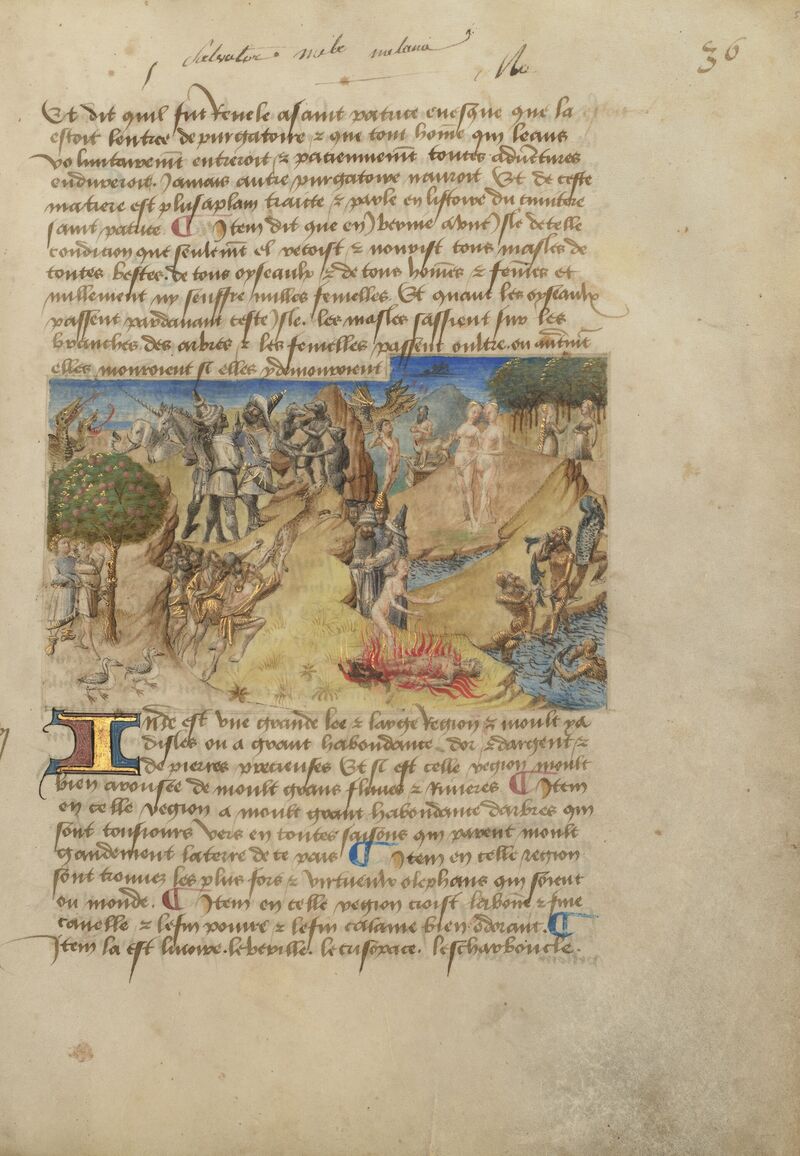 Salvator
36
Et dit quil fut Revele a saint patrice evesque que la
estoit lentree de purgatoire & que tout home qui leans
voluntairemt entreroit & paciemmēt toutes advētures
endureroit. Jamais autre purgatoire nauroit Et de ceste
matiere est plus aplain traicte & parle en listoire du
saint patrice ¶ Item dit que en ybernie a une ysle de telle
condicion que seulemt el & nourist tous masles de
toutes bestes. de tous oyseaulx & de tous homēs & femēs et
nullement ny seuffre nulles femelles Et quant les oyseaulx
passent par devant ceste ysle. les masles sassient sur les
branches des arbres & les femelles passent oultre. ou
elles mouroient se elles y demouroient
Inde est une grande lee & large Region & moult y a
disles ou a grant habondance dor & dargent &
de pierres precieuses Et si est celle region moult
bien arousee de moult grans fluves & Rivieres ¶ Item
en celle region a moult grant habondance darbres qui
sont tousiours vers en toutes saisons qui parent moult
grandement la terre de ce pais ¶ Item en celle region
sont trouvez les plus fors & vertueulx olephans qui soient
ou monde. ¶ Item en celle region croist la bone & fine
canelle & le fin pouvre & le fin calame bien odorant. ¶
Item la est livoire. le berille. le crisopace. lescharboucle.